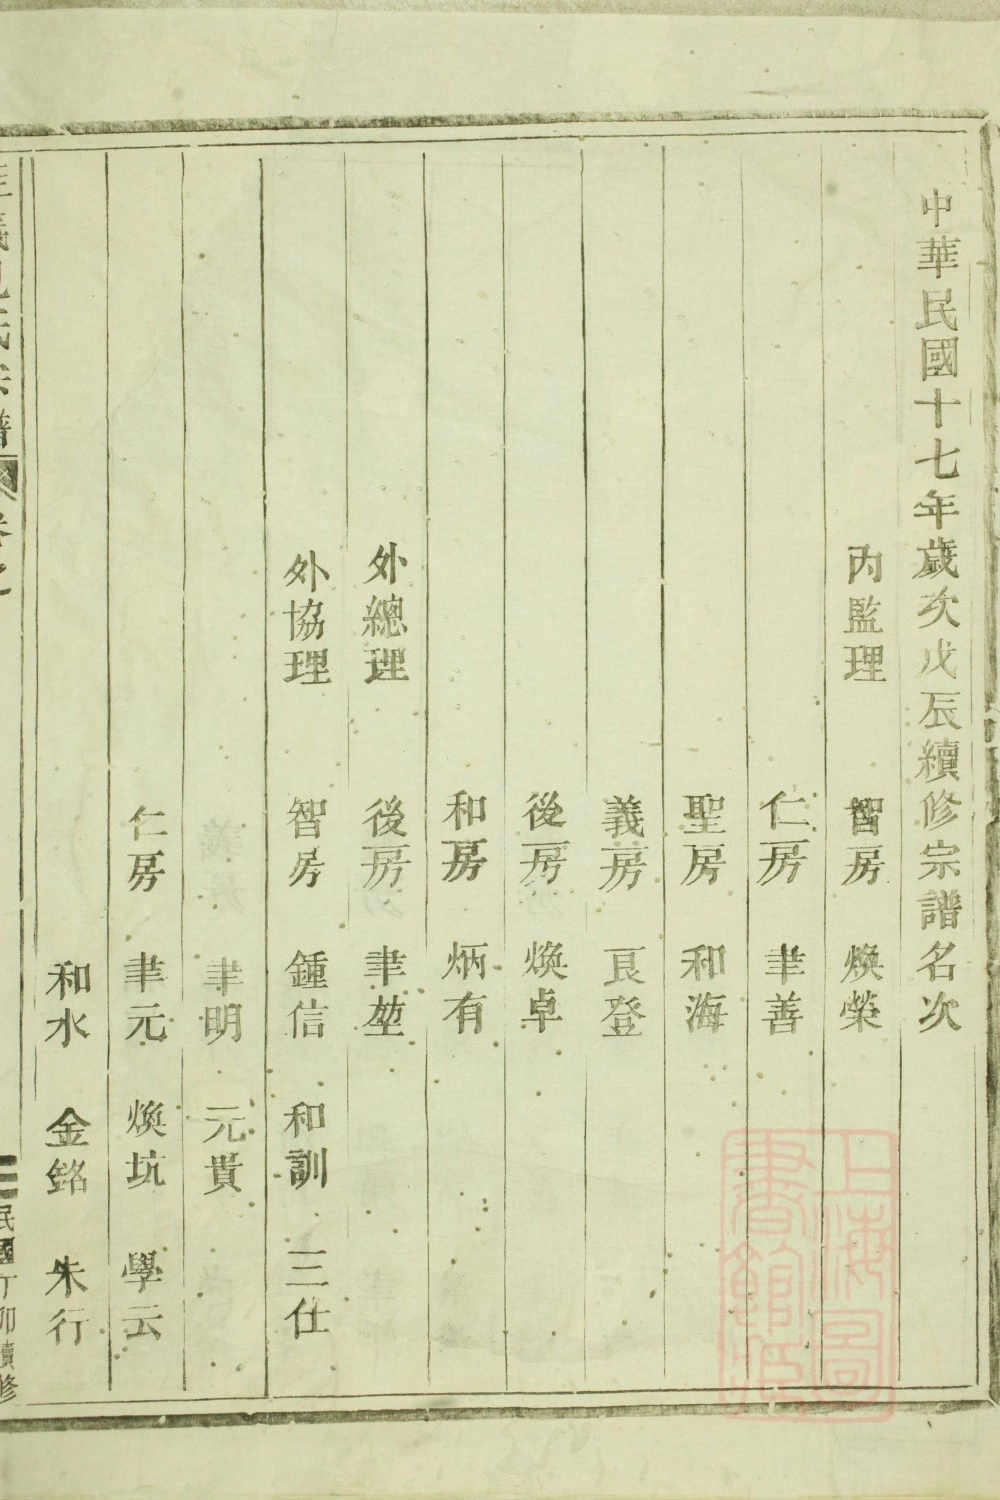 中華民國十七年歲次戊辰續修宗譜名次
內監理 智房 煥榮
仁房 聿善
聖房 和海
義房 良登
後房 煥卓
和房 炳有
外總理 後房 聿堃
外協理 智房 鍾信 和訓 三仕
義房 聿明 元貴
仁房 聿元 煥坑 學云
和水 金銘 朱行
氏宗譜 卷之
民國丁卯續修
上海圖書館藏